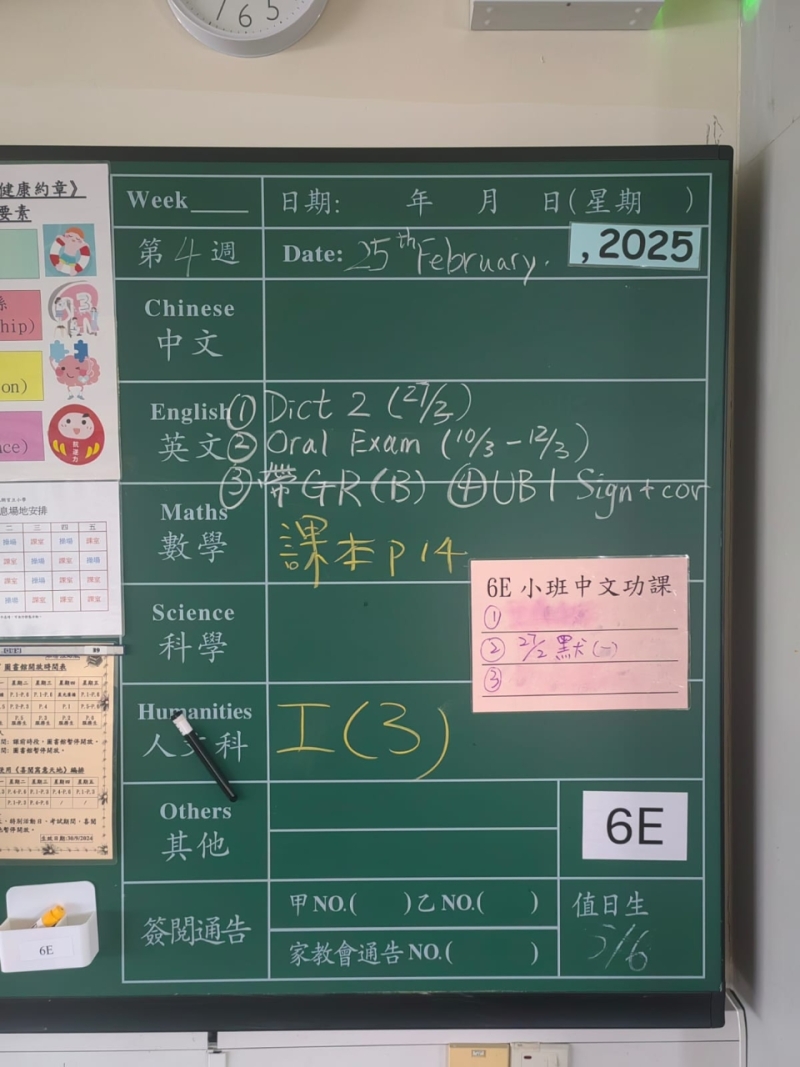 7 6 5
健康約章》
要素
係
hip)
on)
nce)
息場地安排
二 三 四 五
操場 課室 操場 課室
課室 操場 課室 操場
課室 操場 課室 課室
操場 課室 課室 課室
圖書館開放時間表
生效日期:30/9/2024
6E
Week____ 日期: 年 月 日(星期 )
第4週 Date: 25th February. , 2025
Chinese
中文
English ① Dict 2 (27/3)
英文 ② Oral Exam (10/3 - 12/3)
③ 帶GR(B) ④ UB1 Sign + cor
Maths
數學 課本 p 14
6E 小班中文功課
①
② 27/2 默(一)
③
Science
科學
Humanities
人文科 工(3)
Others
其他
6E
簽閱通告
甲 NO.( ) 乙 NO.( )
家教會通告 NO.( )
值日生
5/6